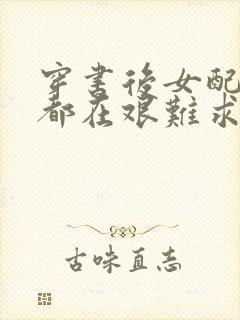 穿書後女配
都在艰難求
古味直志